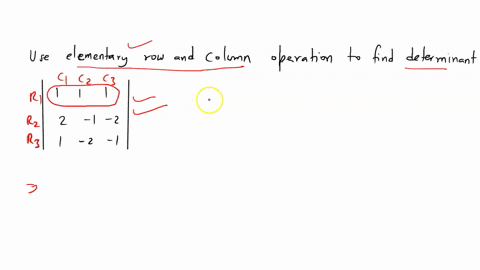 Use elementary row and Column operation to find determinant
C1 C2 C3
R1 1 1 1
R2 2 -1 -2
R3 1 -2 -1